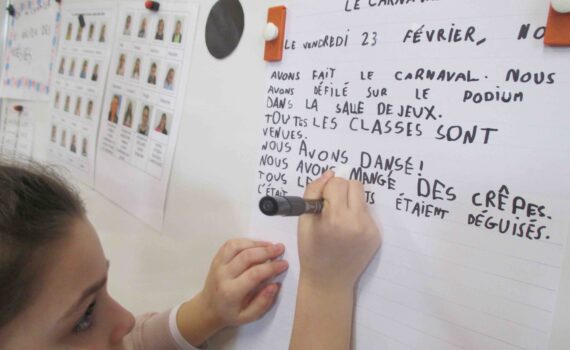 LE CARNAVAL
LE VENDREDI 23 FÉVRIER,
AVONS FAIT LE CARNAVAL. NOUS
AVONS DÉFILÉ SUR LE PODIUM
DANS LA SALLE DE JEUX.
TOUTES LES CLASSES SONT
VENUES.
NOUS AVONS DANSÉ!
NOUS AVONS MANGÉ DES CRÊPES.
TOUS ÉTAIENT DÉGUISÉS.
C'ÉTAIT